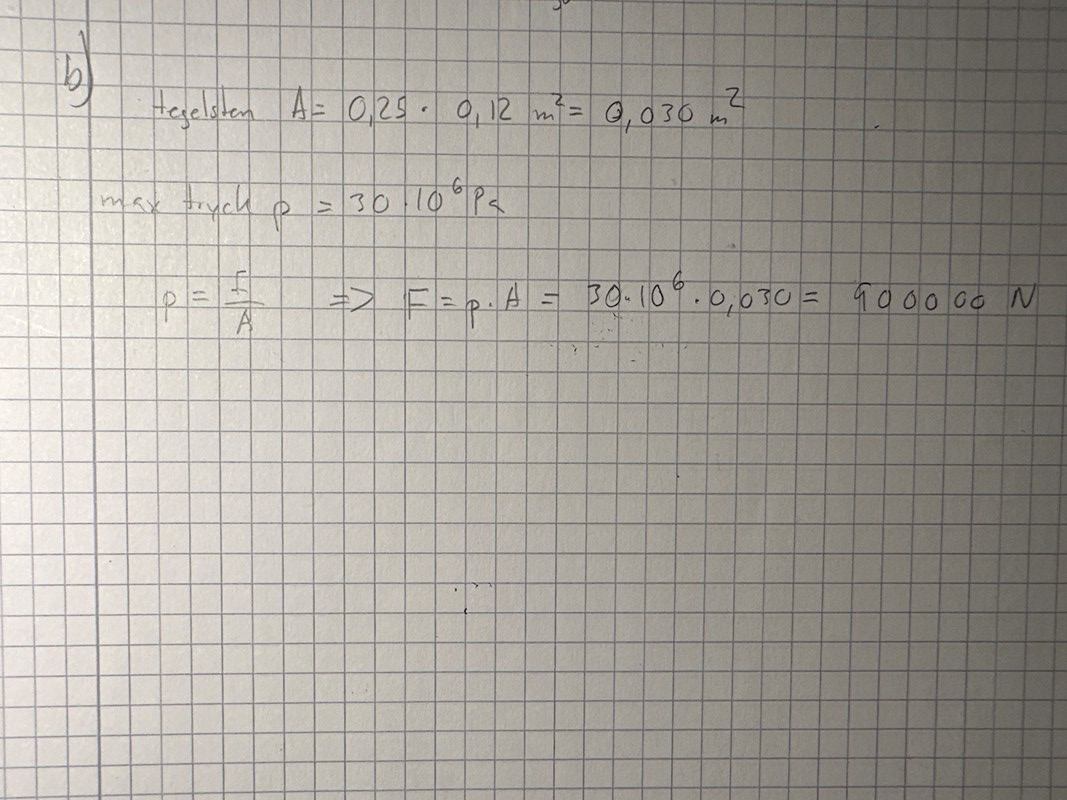 b)
tegelsten A = 0,25 · 0,12 m² = 0,030 m²
max tryck p = 30 · 10⁶ Pa
p = F/A => F = p · A = 30 · 10⁶ · 0,030 = 900000 N